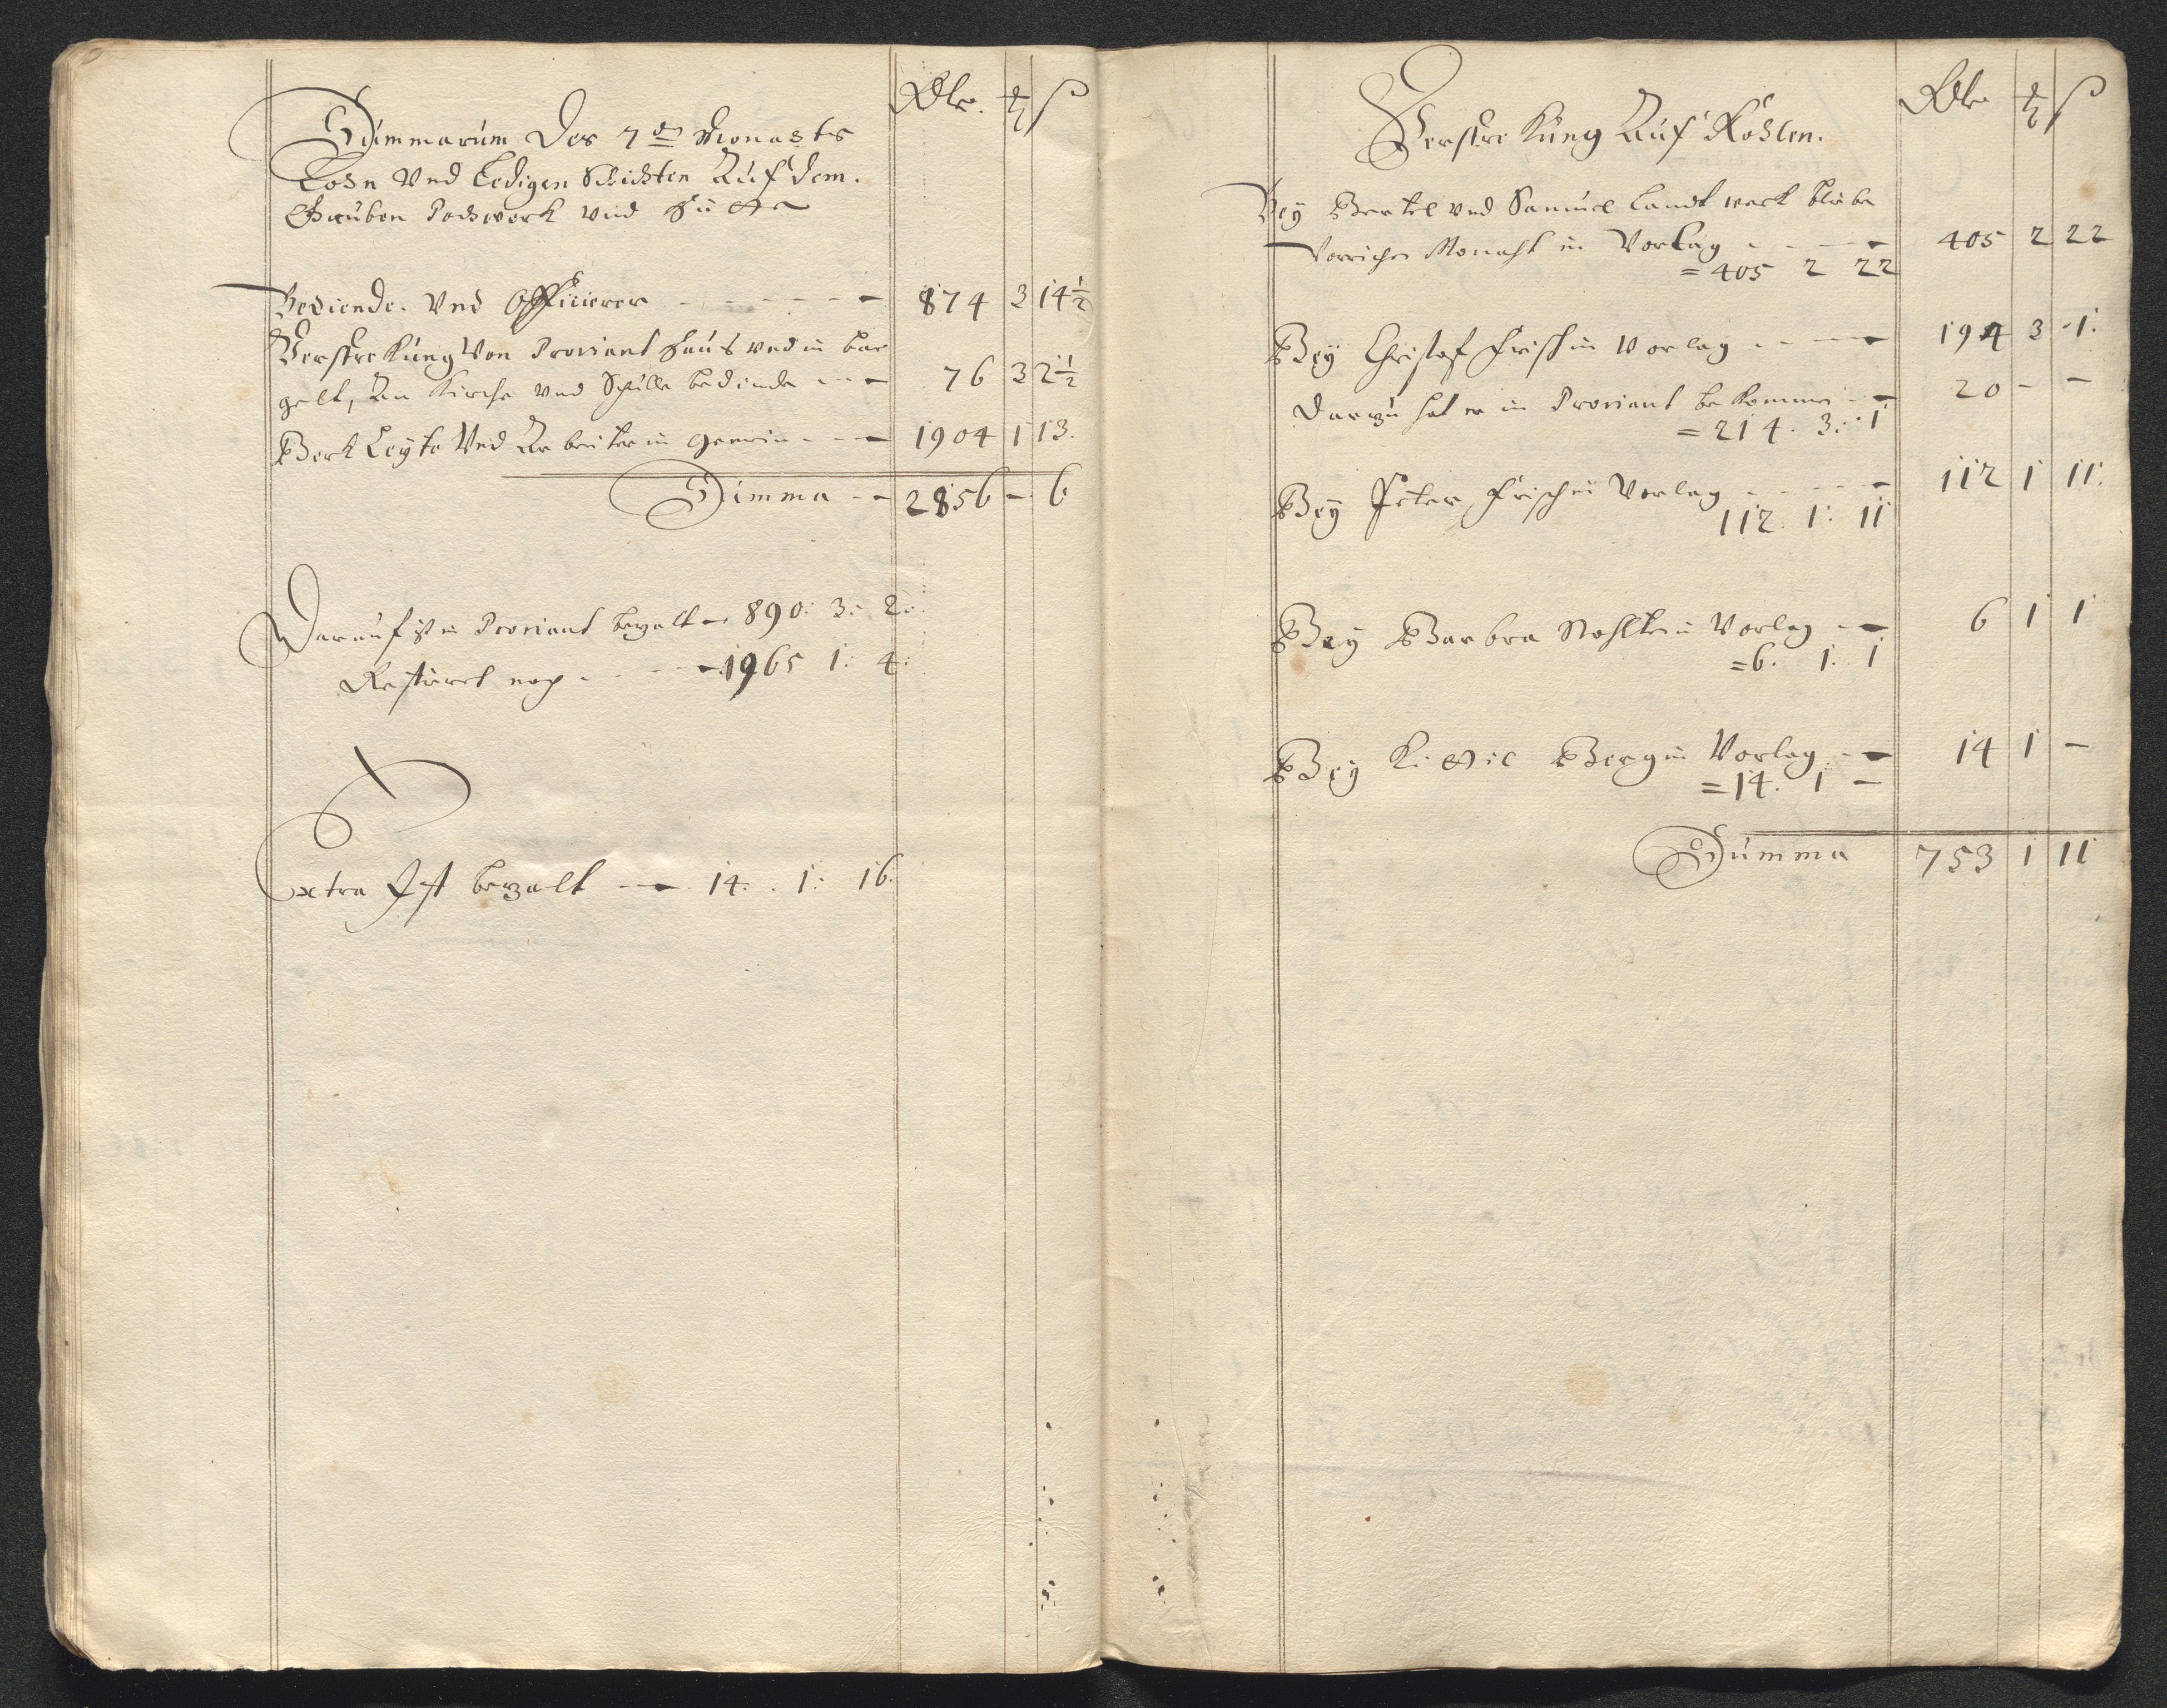 Rdlr. ß
Summarum Des 7den Monahts
Lohn Und Ledigen Schichten Auf dem
Gruben Pochwerk und Hütte
Bediende Und Officirer - - - - - - 874 3 14½
Verstreckung Von Proviant Haus und in bar
gelt, An Kirche und Schulle bediende - - - 76 3 2½
Berk Leÿte Und Arbeiter in gemein - - - 1904 1 13.
Summa - - 2856 - 6
Darauf ist in Proviant bezalt - 890: 3: 2:
Restieret noch - - - - 1965 1: 4:
Extra Ist bezalt - - 14. 1: 16:
Rdlr ß
Verstreckung Auf Kohlen.
Beÿ Bertel und Samuel Landtwerk blibe
Vorrichen Monaht in Vorlag - - - - - 405 2 22
= 405 2 22
Beÿ Christof Frisch in Vorlag - - - 194 3 -1.
Darzu hat er in Proviant bekommen - - 20 - -
= 214. 3: 1
Beÿ Peter Frisch in Vorlag - - - - - 112 1 11.
112. 1: 11
Beÿ Barbra in Vorlag - - 6 1 1
= 6. 1: 1
Beÿ Kittil Berg in Vorlag - - 14 1 -
= 14. 1 -
Summa 753 1 11